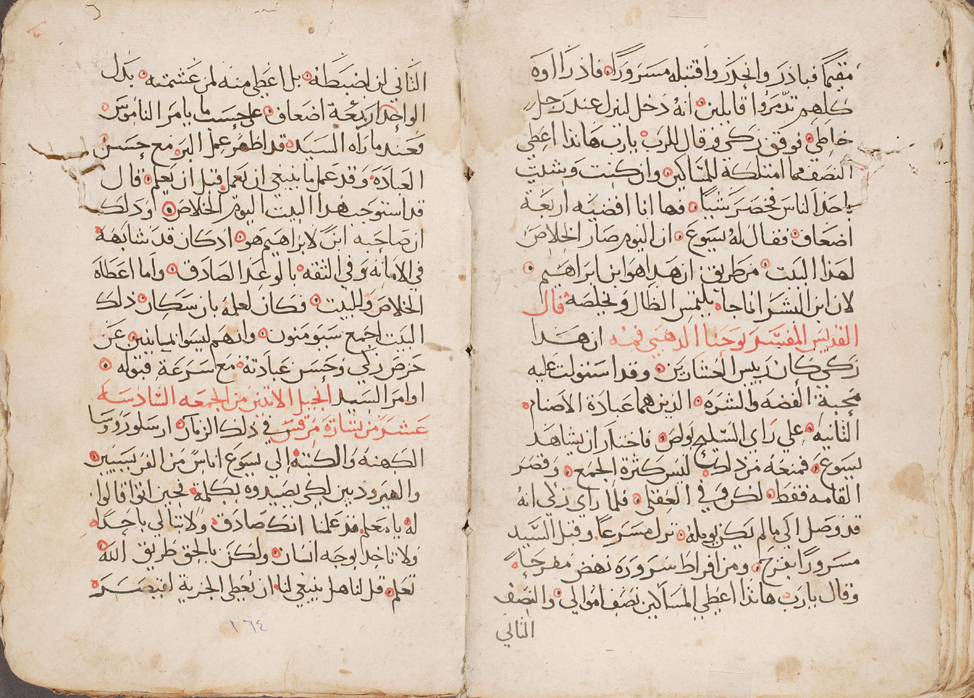 مقيمًا فبادر وانحدر واقتبله مسرورًا فلما راوه
كلهم تذمروا قايلين انه دخل لينزل عند رجل
خاطي فوقف زكى وقال للرب يارب هانذا اعطي
النصف مما امتلكه للمساكين وان كنت وشيت
باحد الناس فخصر شيًا فها انا اقضيه اربعة
اضعاف فقال له يسوع ان اليوم صار الخلاص
لهذا البيت من طريق ان هذا هو ابن ابراهيم
لان ابن البشر انما جا يلتمس الضال ويخلصه قال
القديس المفسر يوحنا الذهبي فمه ان هذا
زكى كان ريس العشارين وقد استولت عليه
محبة الفضه والشره الذين هما عبادة الاصنام
الثانيه علي راي السليح بولص فاختار ان يشاهد
يسوع فمنعه من ذلك ليس كثرة الجمع وقصر
القامه فقط لكن وفي العقل فلما راي زكى انه
قد وصل الى مالم يكن يومله نزل مسرعًا وقبل السيد
مسرورًا بفرح ومن افراط سروره نهض مفرحًا
وقال يارب هانذا اعطي المساكين نصف اموالي والنصف
الثاني
الثاني لن اضبطه بل اعطي منه لمن غشمته بدل
الواحد اربعة اضعاف علي حسب ما يامر الناموس
فعند ما راه السيد قد اظهر عمل البر مع حسن
العباده وقد عمل ما ينبغي ان يعمل قبل ان يعلم قال
قد استوجب هذا البيت اليوم الخلاص اذ ذلك
ان صاحبه ابن لابراهيم هو اذ كان قد شابهه
في الامانه وفي الثقه بالوعد الصادق واما اعطاه
الخلاص للبيت فكان لعلمه بان سكان ذلك
البيت اجمع سيومنون وانهم ليسوا مباينين عن
حرص زكى وحسن عبادته مع سرعة قبوله
اوامر السيد انجيل الاثنين من الجمعه السادسه
عشر من بشارة مرقس في ذلك الزمان ارسلو روسا
الكهنه والكتبه الي يسوع اناس من الفريسيين
والهيروديين لكي يصيدوه بكلمة فحين اتوا قالوا
له يا معلم قد علمنا انك صادق ولا تبالي باحد
ولا تاخذ بوجه انسان ولكن بالحق طريق الله
تعلم قل لنا هل ينبغي لنا ان نعطي الجزية لقيصر
١٦٤